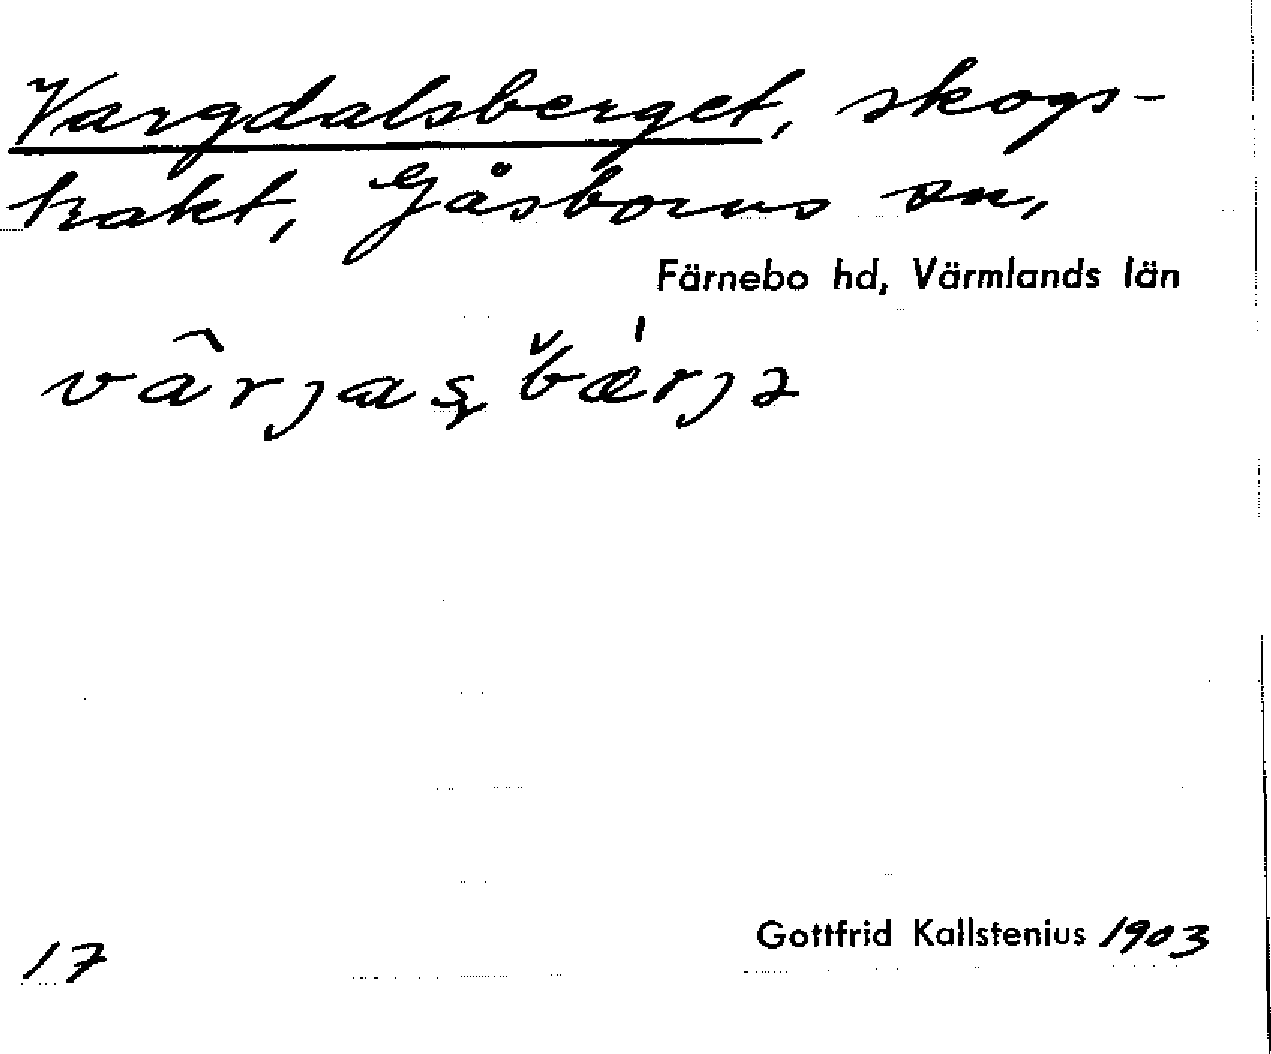 Vargdalsberget, skogs-
trakt, Gåsborns sn,
Färnebo hd, Värmlands län
17
Gottfrid Kallstenius 1903